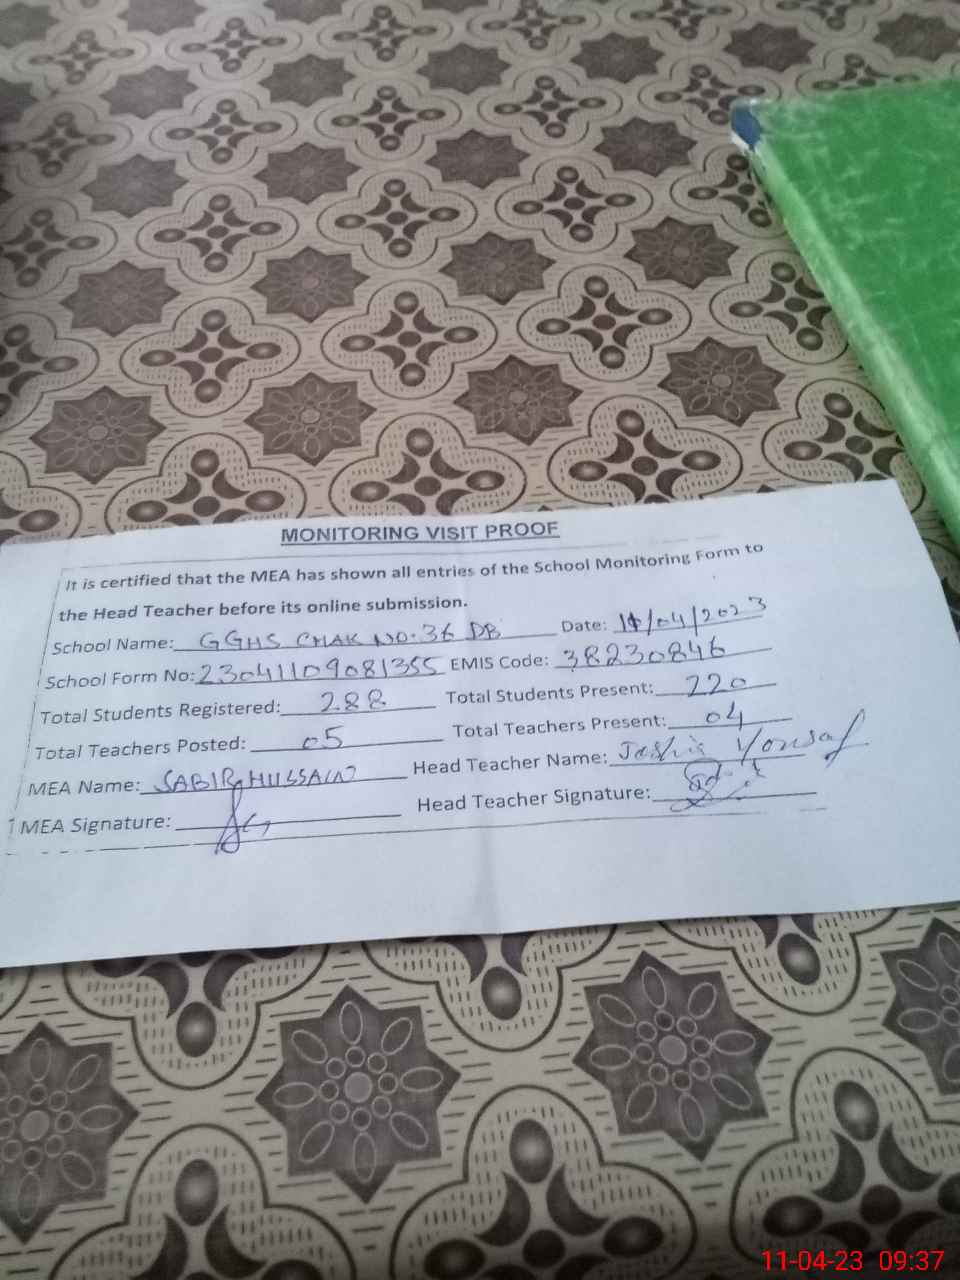 MONITORING VISIT PROOF
It is certified that the MEA has shown all entries of the School Monitoring Form to
the Head Teacher before its online submission.
School Name: GGHS CHAK NO. 36 DB Date: 11/04/2023
School Form No: 23041109081355 EMIS Code: 38230846
Total Students Registered: 288 Total Students Present: 220
Total Teachers Posted: 05 Total Teachers Present: 04
MEA Name: SABIR HUSSAIN Head Teacher Name: Yousaf
MEA Signature: Head Teacher Signature:
11-04-23 09:37